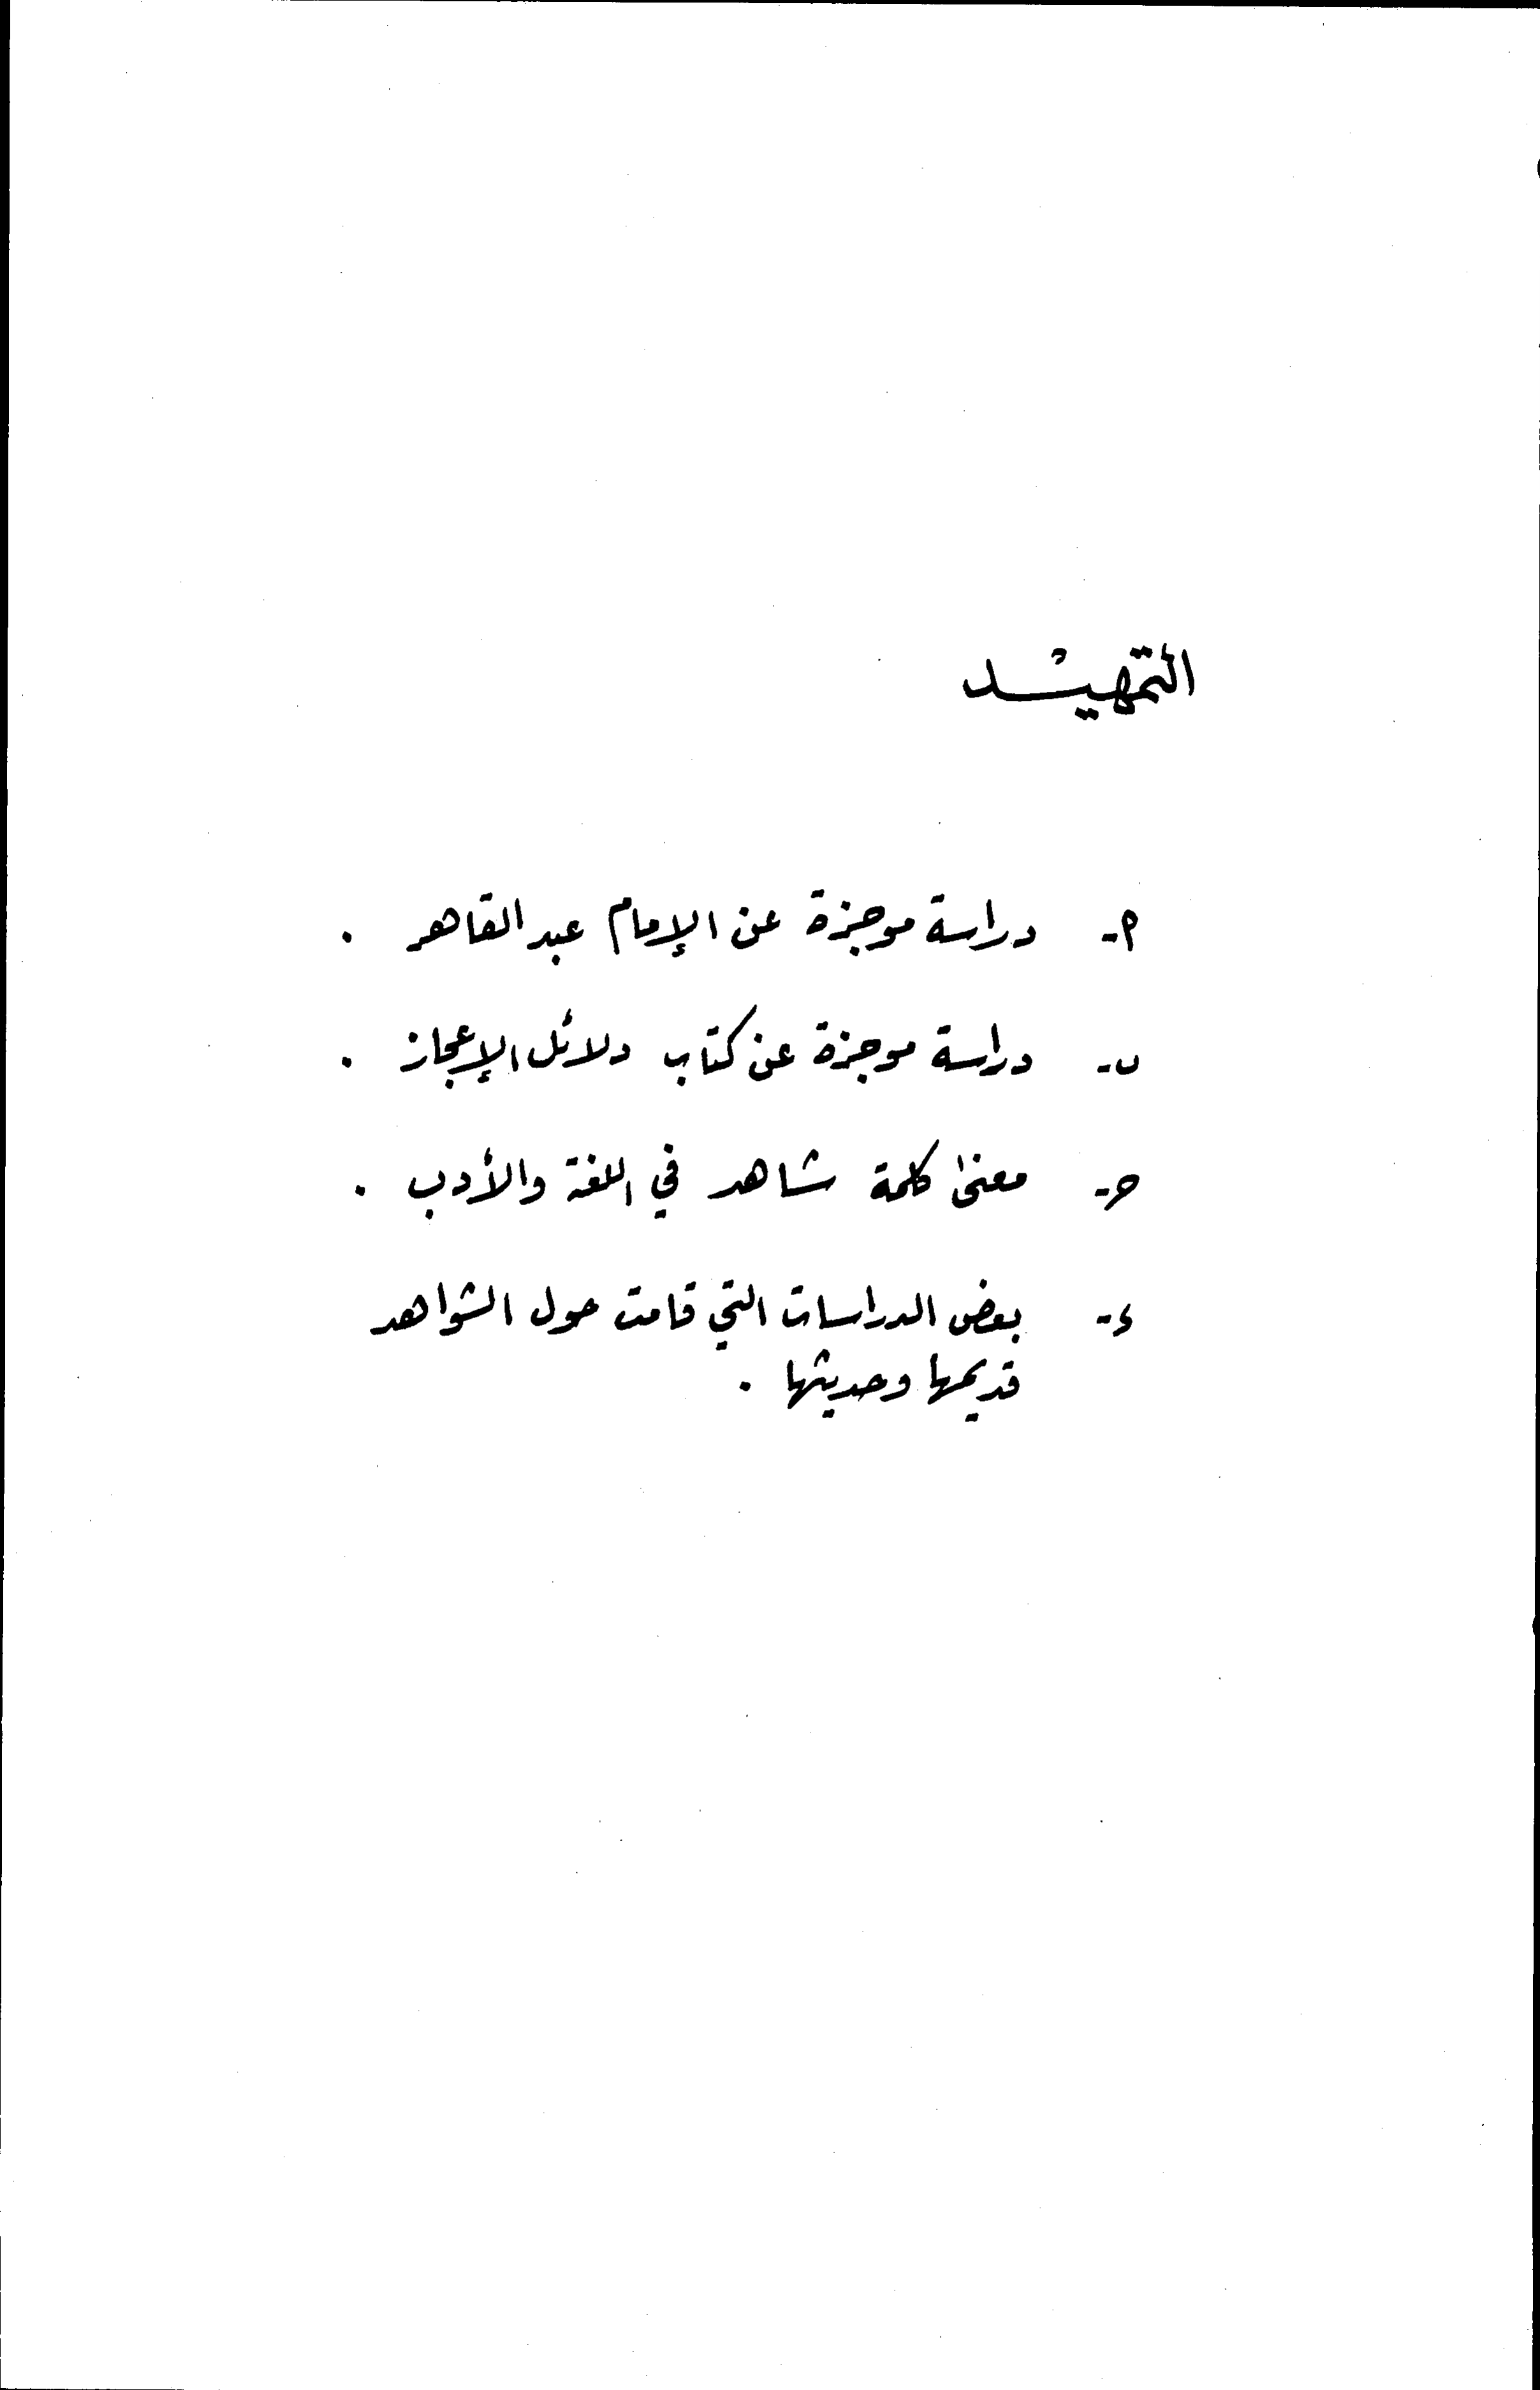 التمهيد
أ- دراسة موجزة عن الإمام عبد القاهر .
ب- دراسة موجزة عن كتاب دلائل الإعجاز .
ج- معنى كلمة شاهد في اللغة والأدب .
د- بعض الدراسات التي قامت حول الشواهد
قديمها وحديثها .